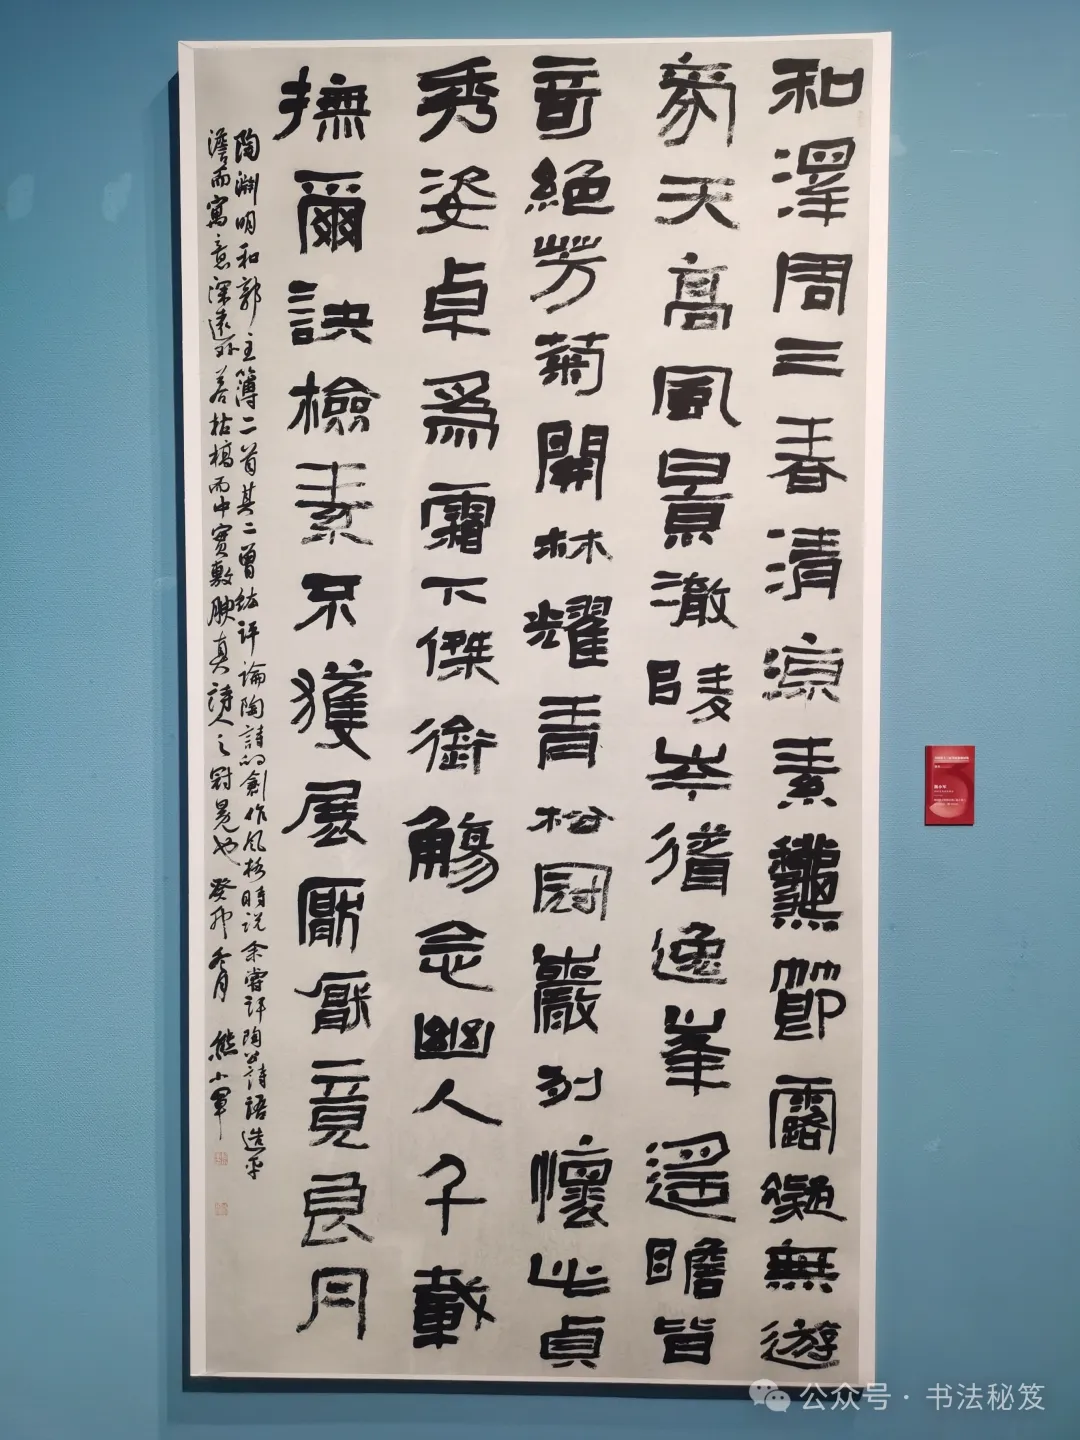 和澤周三春清涼素龝節露凝無遊
氛天高風景澈陵岑逸峯遥瞻皆
奇絕芳菊開林耀青松冠巖列懷此貞
秀姿卓爲霜下傑銜觴念幽人千載
撫爾訣檢素不獲展厭厭竟良月
陶淵明和郭主簿二首其二曾紘評論陶詩的創作风格時说余嘗評陶公詩語造平
澹而寓意深遠外若枯槁而中實敷腴真詩人之冠冕也 癸卯冬月 熊小軍
公众号·书法秘笈